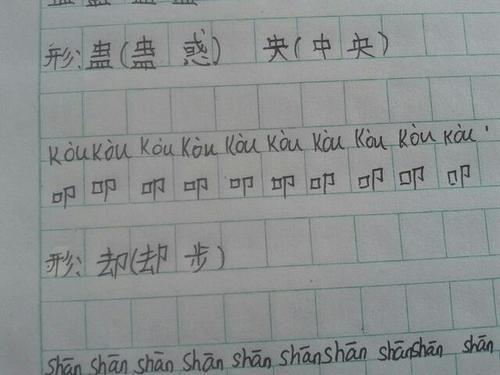 形:蛊(蛊惑) 央(中央)
Kòu Kòu Kòu Kòu Kòu Kòu Kòu Kòu Kòu Kòu
叩 叩 叩 叩 叩 叩 叩 叩 叩 叩
形:却(却步)
shān shān shān shān shān shān shān shān shān shān